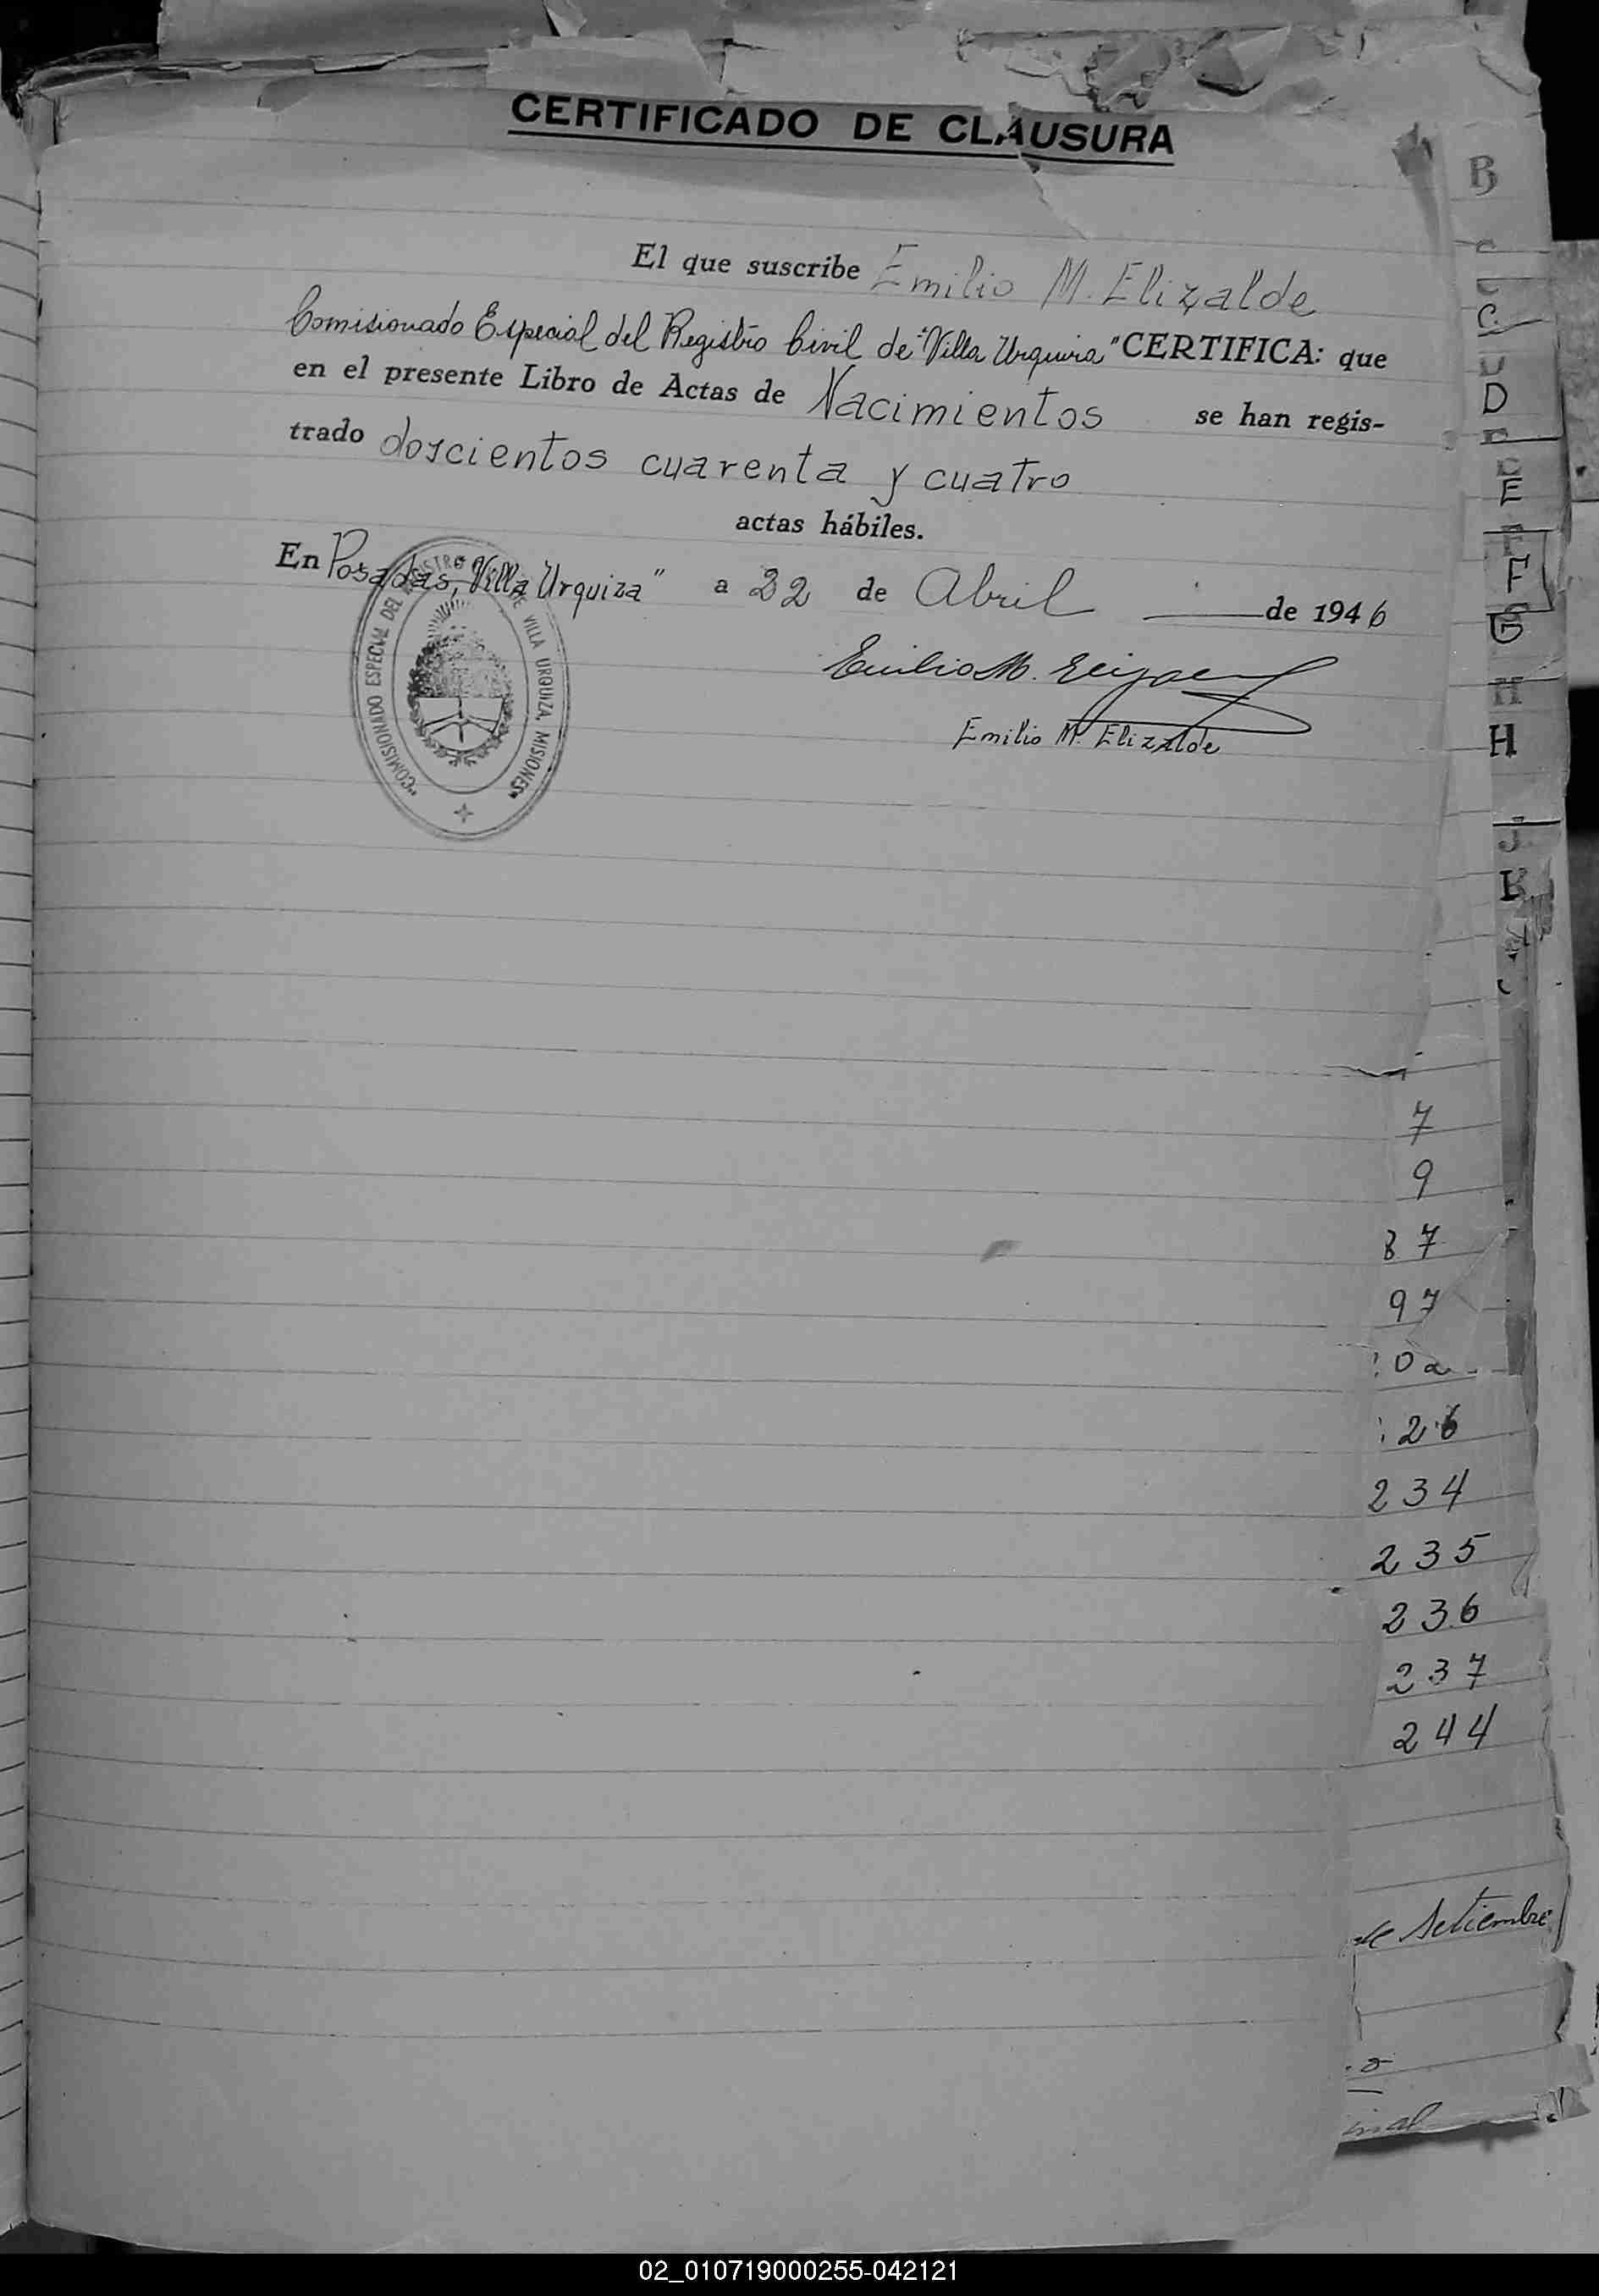 CERTIFICADO DE CLAUSURA
El que suscribe Emilio M. Elizalde
Comisionado Especial del Registro Civil de "Villa Urquiza" CERTIFICA: que
en el presente Libro de Actas de Nacimientos se han regis-
trado doscientos cuarenta y cuatro
actas hábiles.
En Posadas, "Villa Urquiza" a 22 de Abril de 1946
Emilio M.
Emilio M. Elizalde
"COMISIONADO ESPECIAL DEL REGISTRO DE VILLA URQUIZA, MISIONES"
B
C
C
D
E
F
G
H
H
J
7
9
87
97
26
234
235
236
237
244
de Setiembre
02_010719000255-042121